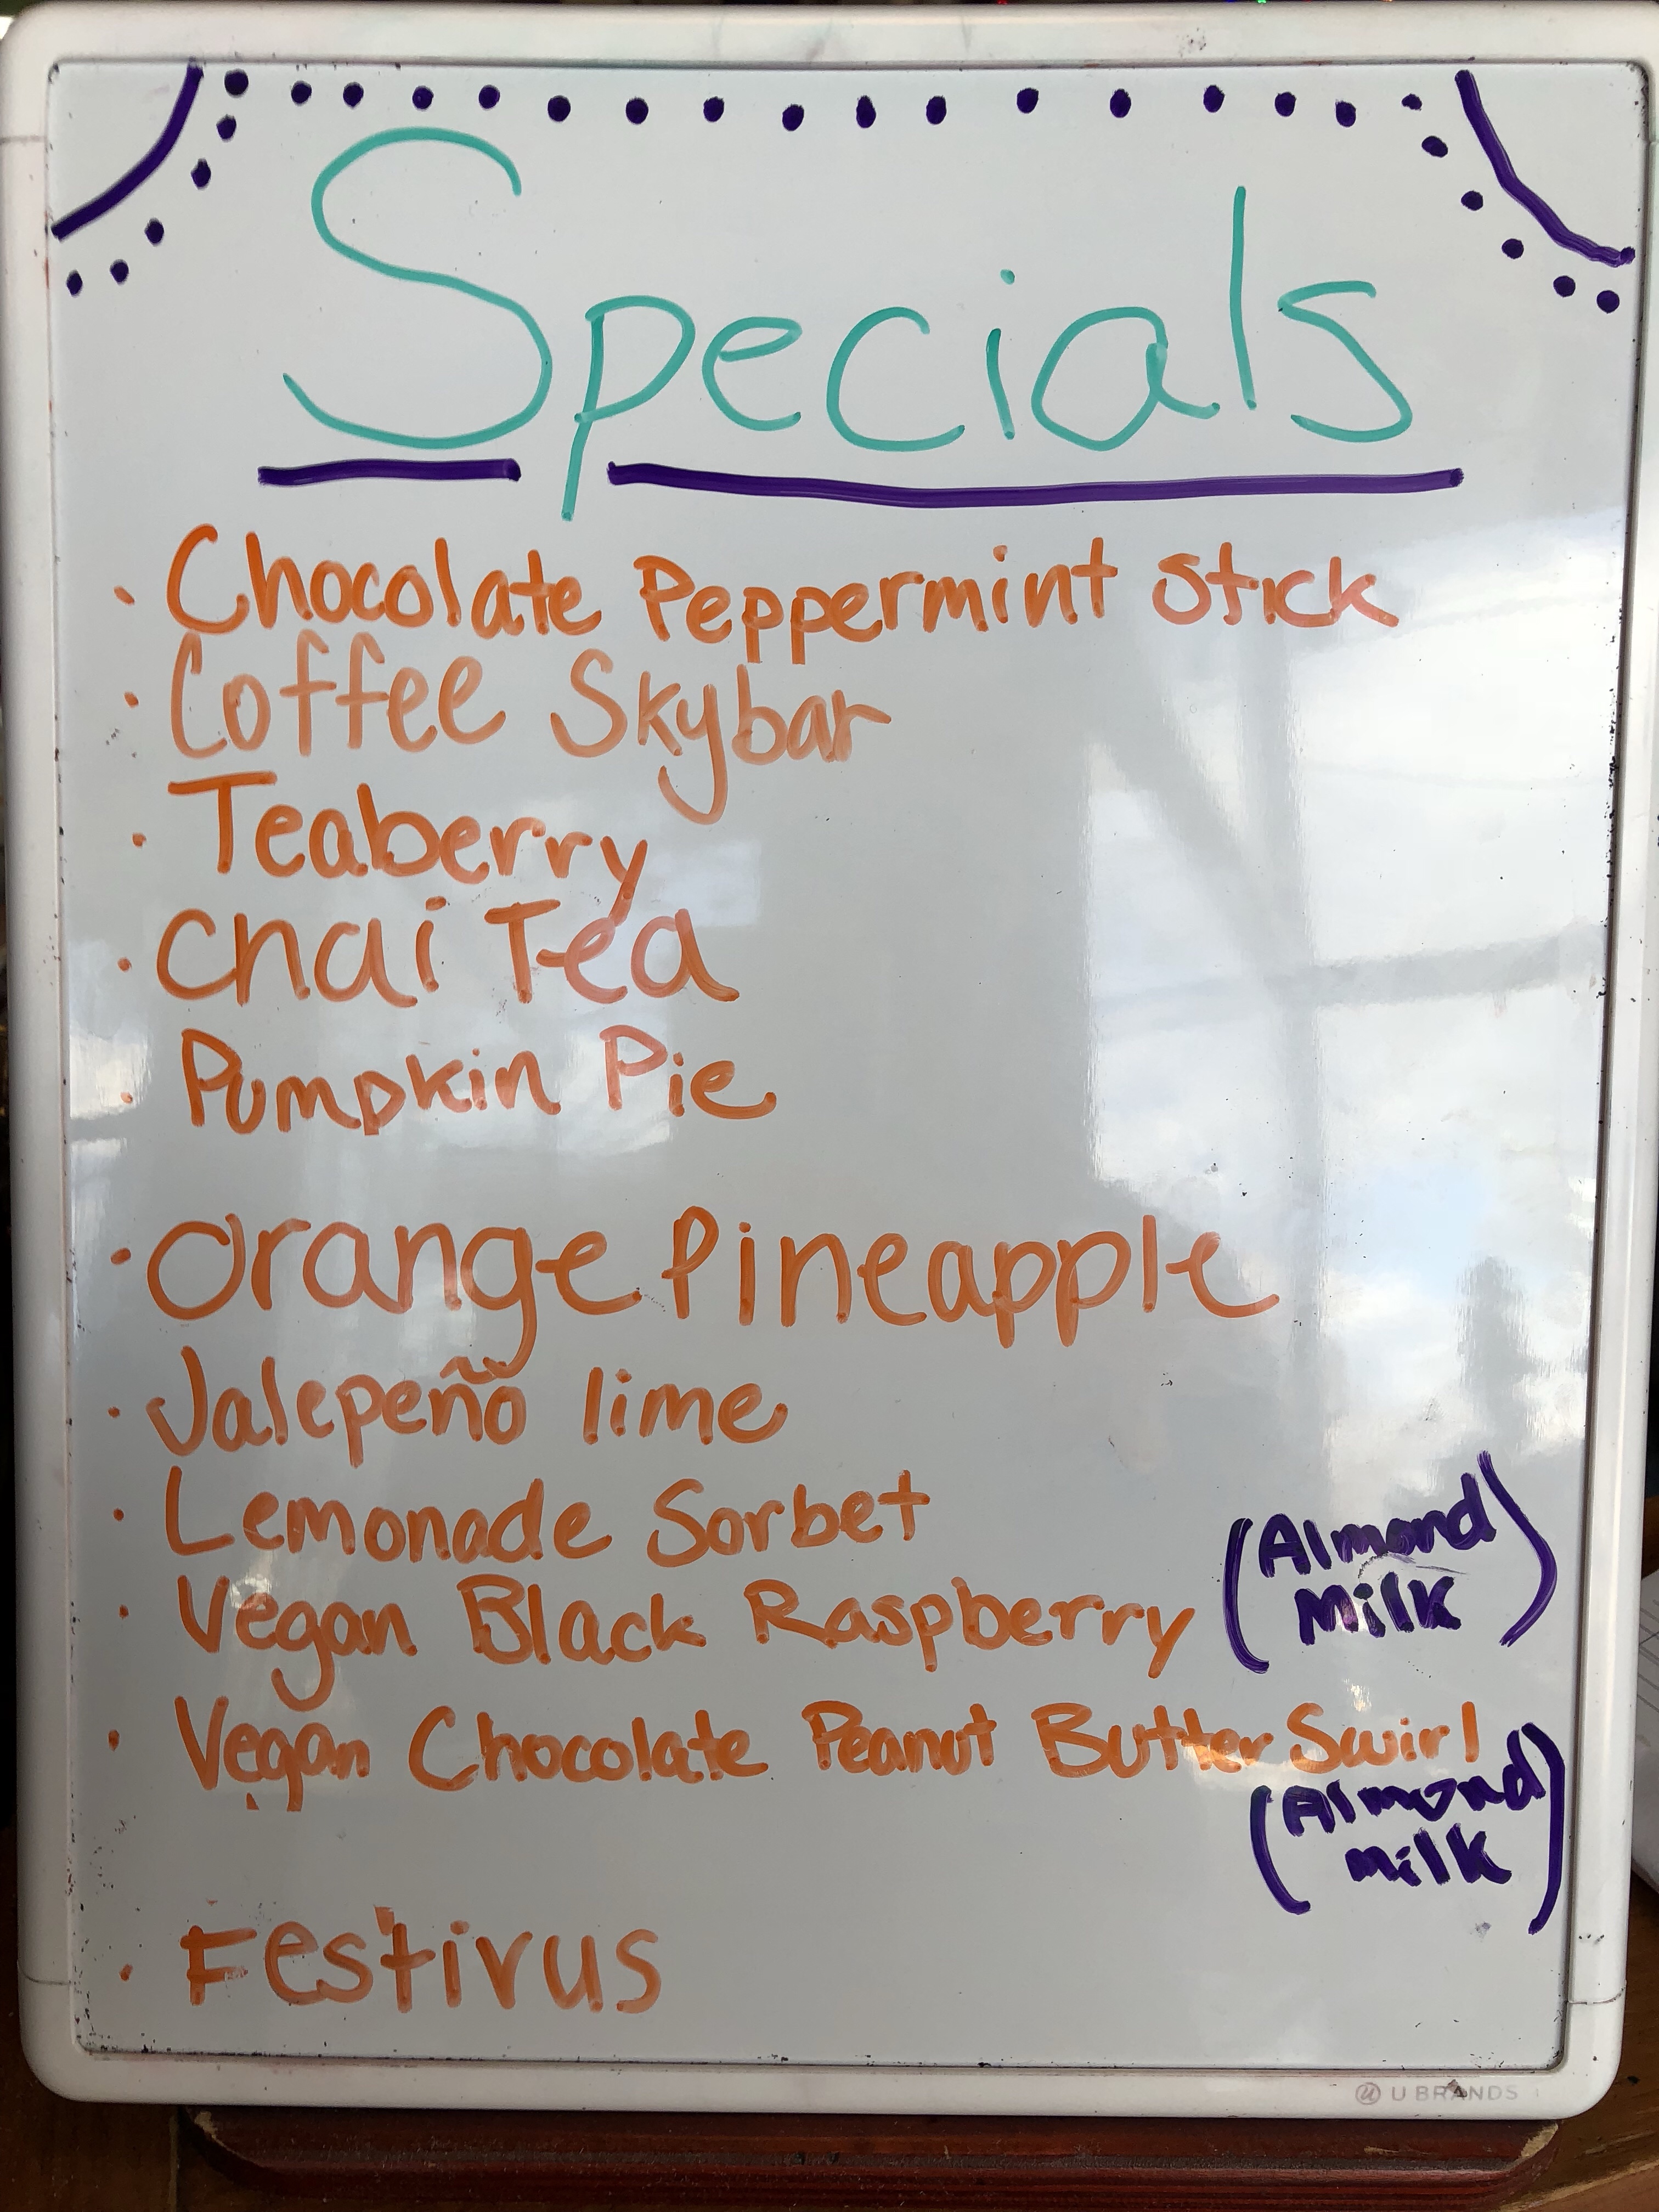 Specials
· Chocolate Peppermint Stick
· Coffee Skybar
· Teaberry
· Chai Tea
· Pumpkin Pie
· Orange Pineapple
· Jalepeño lime
· Lemonade Sorbet
· Vegan Black Raspberry (Almond
Milk)
· Vegan Chocolate Peanut Butter Swirl
(Almond
Milk)
· Festivus
U BRANDS